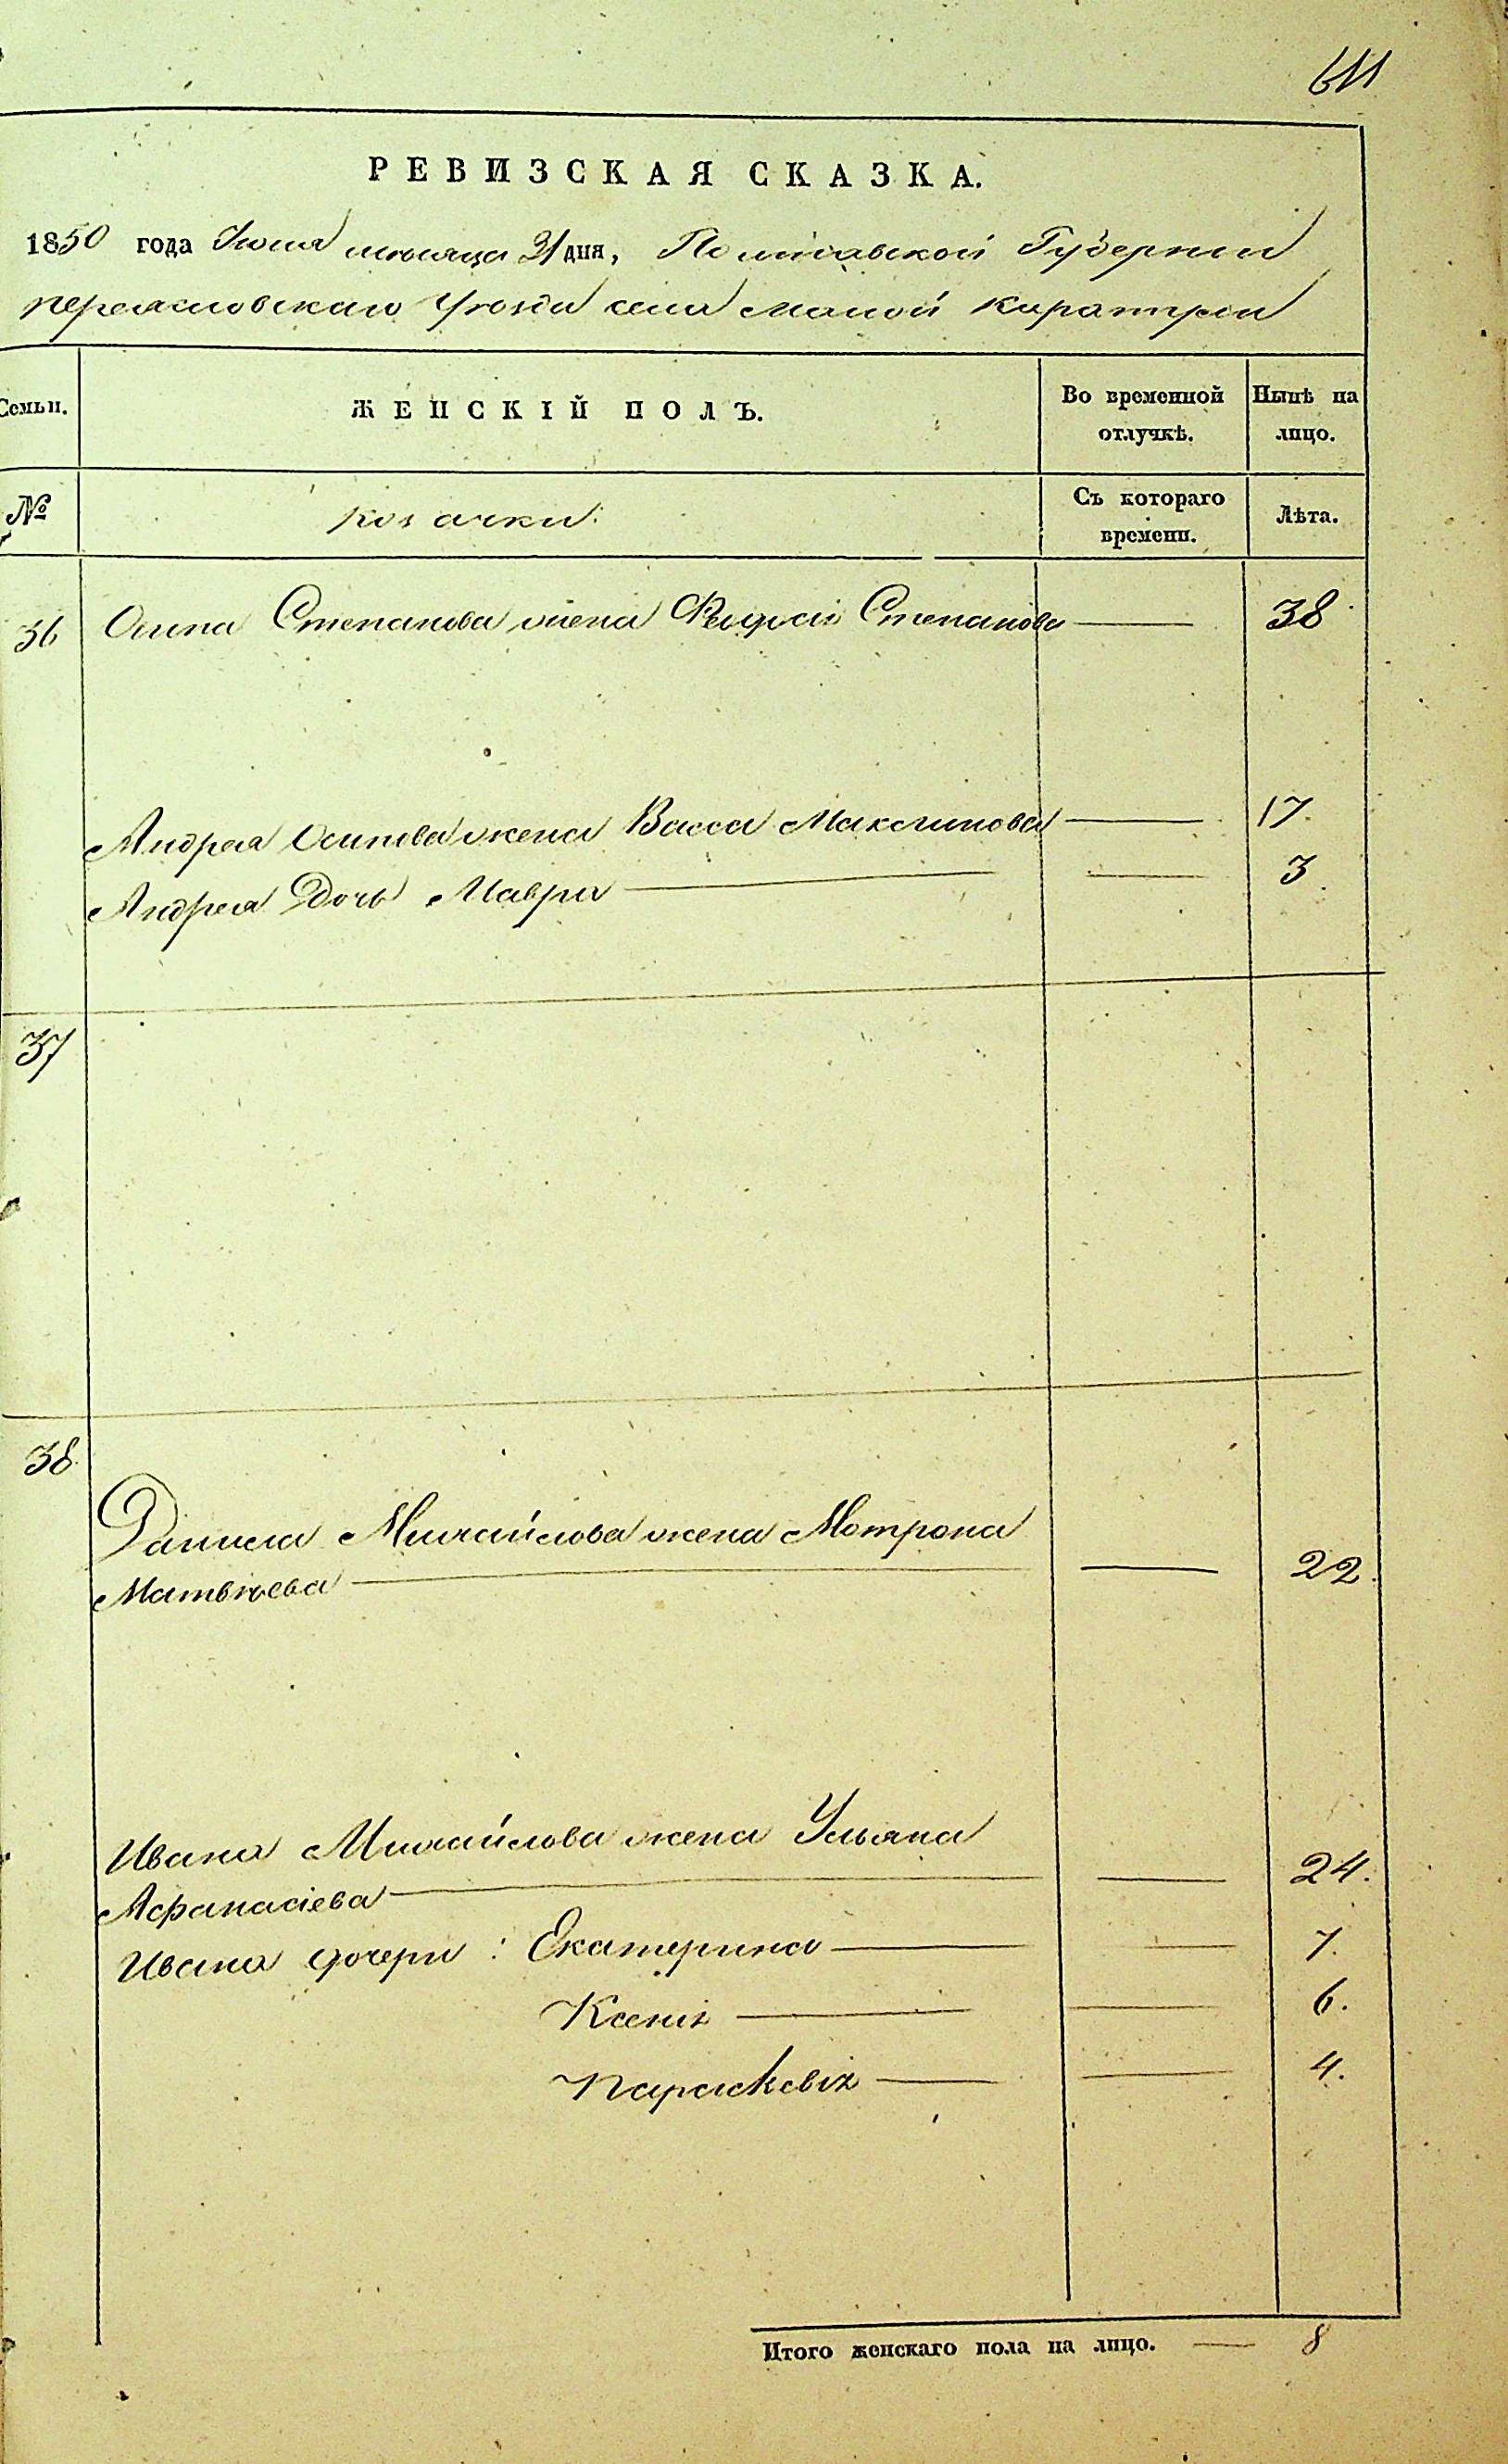 611
РЕВИЗСКАЯ СКАЗКА.
1850 года Июля месяца 31 дня, Полтавской Губернии
переясловскаго Уезда села малой каратули
Семьи.
ЖЕНСКІЙ ПОЛЪ.
Во временной отлучкѣ.
Нынѣ на лицо.
№
козачки:
Съ котораго времени.
Лѣта.
36 Осипа Степанова жена Феодосія Степанова — 38
Андрея Осипова жена Васса Максимова — 17.
Андрея Дочь Мавра — — 3
37
38
Данила Михайлова жена Мотрона
Матвѣева — — 22.
Ивана Михайлова жена Ульяна
Афанасіева — — 24.
Ивана дочери: Екатерина — — 7.
Ксенія — — 6.
параскевія — — 4.
Итого женскаго пола на лицо. — 8